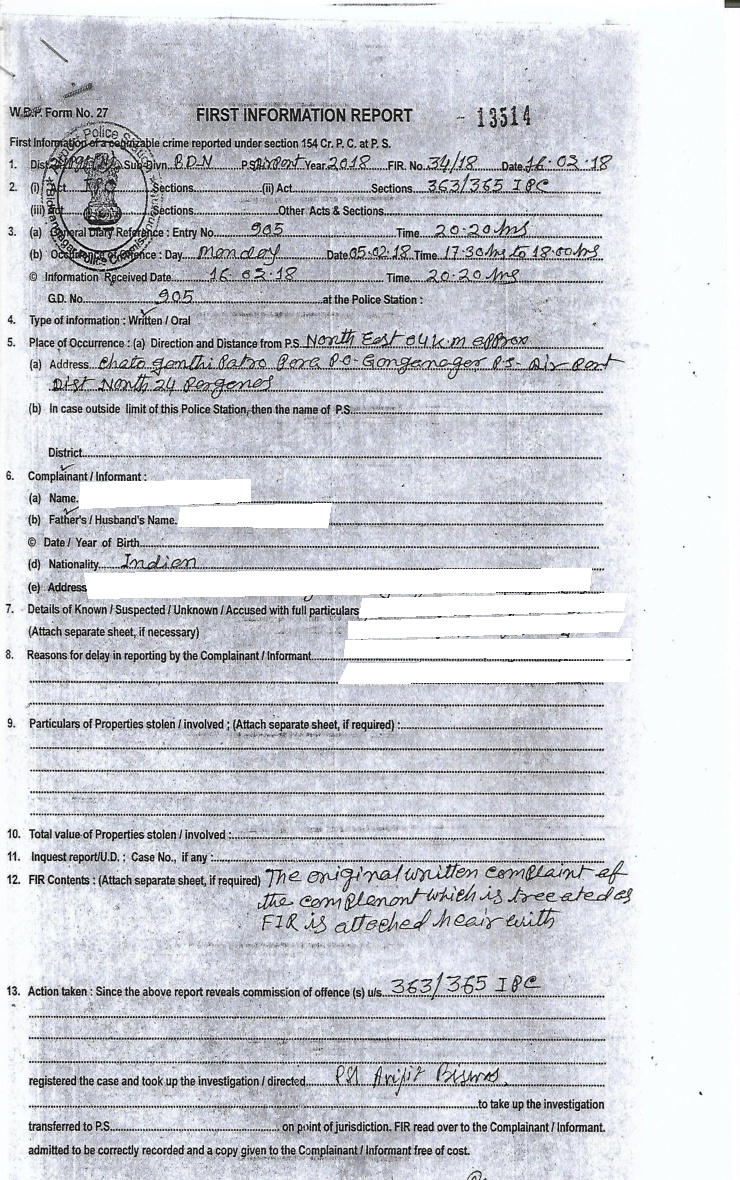 W.B.P. Form No. 27
FIRST INFORMATION REPORT - 13514
First Information of a cognizable crime reported under section 154 Cr. P. C. at P. S.
1. Dist. Sub-Divn. B.D.N P.S. Airport Year 2018 FIR. No. 34/18 Date 16.03.18
2. (i) Act Sections (ii) Act Sections 363/365 IPC
(iii) Act Sections Other Acts & Sections
3. (a) General Diary Reference : Entry No. 905 Time 20.20 hrs
(b) Occurrence of Offence : Day Monday Date 05.02.18 Time 17:30 hrs to 18:00 hrs
© Information Received Date 16.03.18 Time 20.20 hrs
G.D. No. 905 at the Police Station :
4. Type of information : Written / Oral
5. Place of Occurrence : (a) Direction and Distance from P.S. North East 04 k.m approx
(a) Address Chato ganthi Patro Para PO- Ganganagar PS- Air Port
Dist North 24 Parganas
(b) In case outside limit of this Police Station, then the name of P.S.
District
6. Complainant / Informant :
(a) Name.
(b) Father's / Husband's Name.
© Date / Year of Birth
(d) Nationality Indian
(e) Address
7. Details of Known / Suspected / Unknown / Accused with full particulars
(Attach separate sheet, if necessary)
8. Reasons for delay in reporting by the Complainant / Informant
9. Particulars of Properties stolen / involved ; (Attach separate sheet, if required) :
10. Total value of Properties stolen / involved :
11. Inquest report/U.D. ; Case No., if any :
12. FIR Contents : (Attach separate sheet, if required) The original written complaint of
the complenont which is treeated as
FIR is attached heair with
13. Action taken : Since the above report reveals commission of offence (s) u/s. 363/365 IPC
registered the case and took up the investigation / directed PSI Arijit Biswas
to take up the investigation
transferred to P.S. on point of jurisdiction. FIR read over to the Complainant / Informant.
admitted to be correctly recorded and a copy given to the Complainant / Informant free of cost.